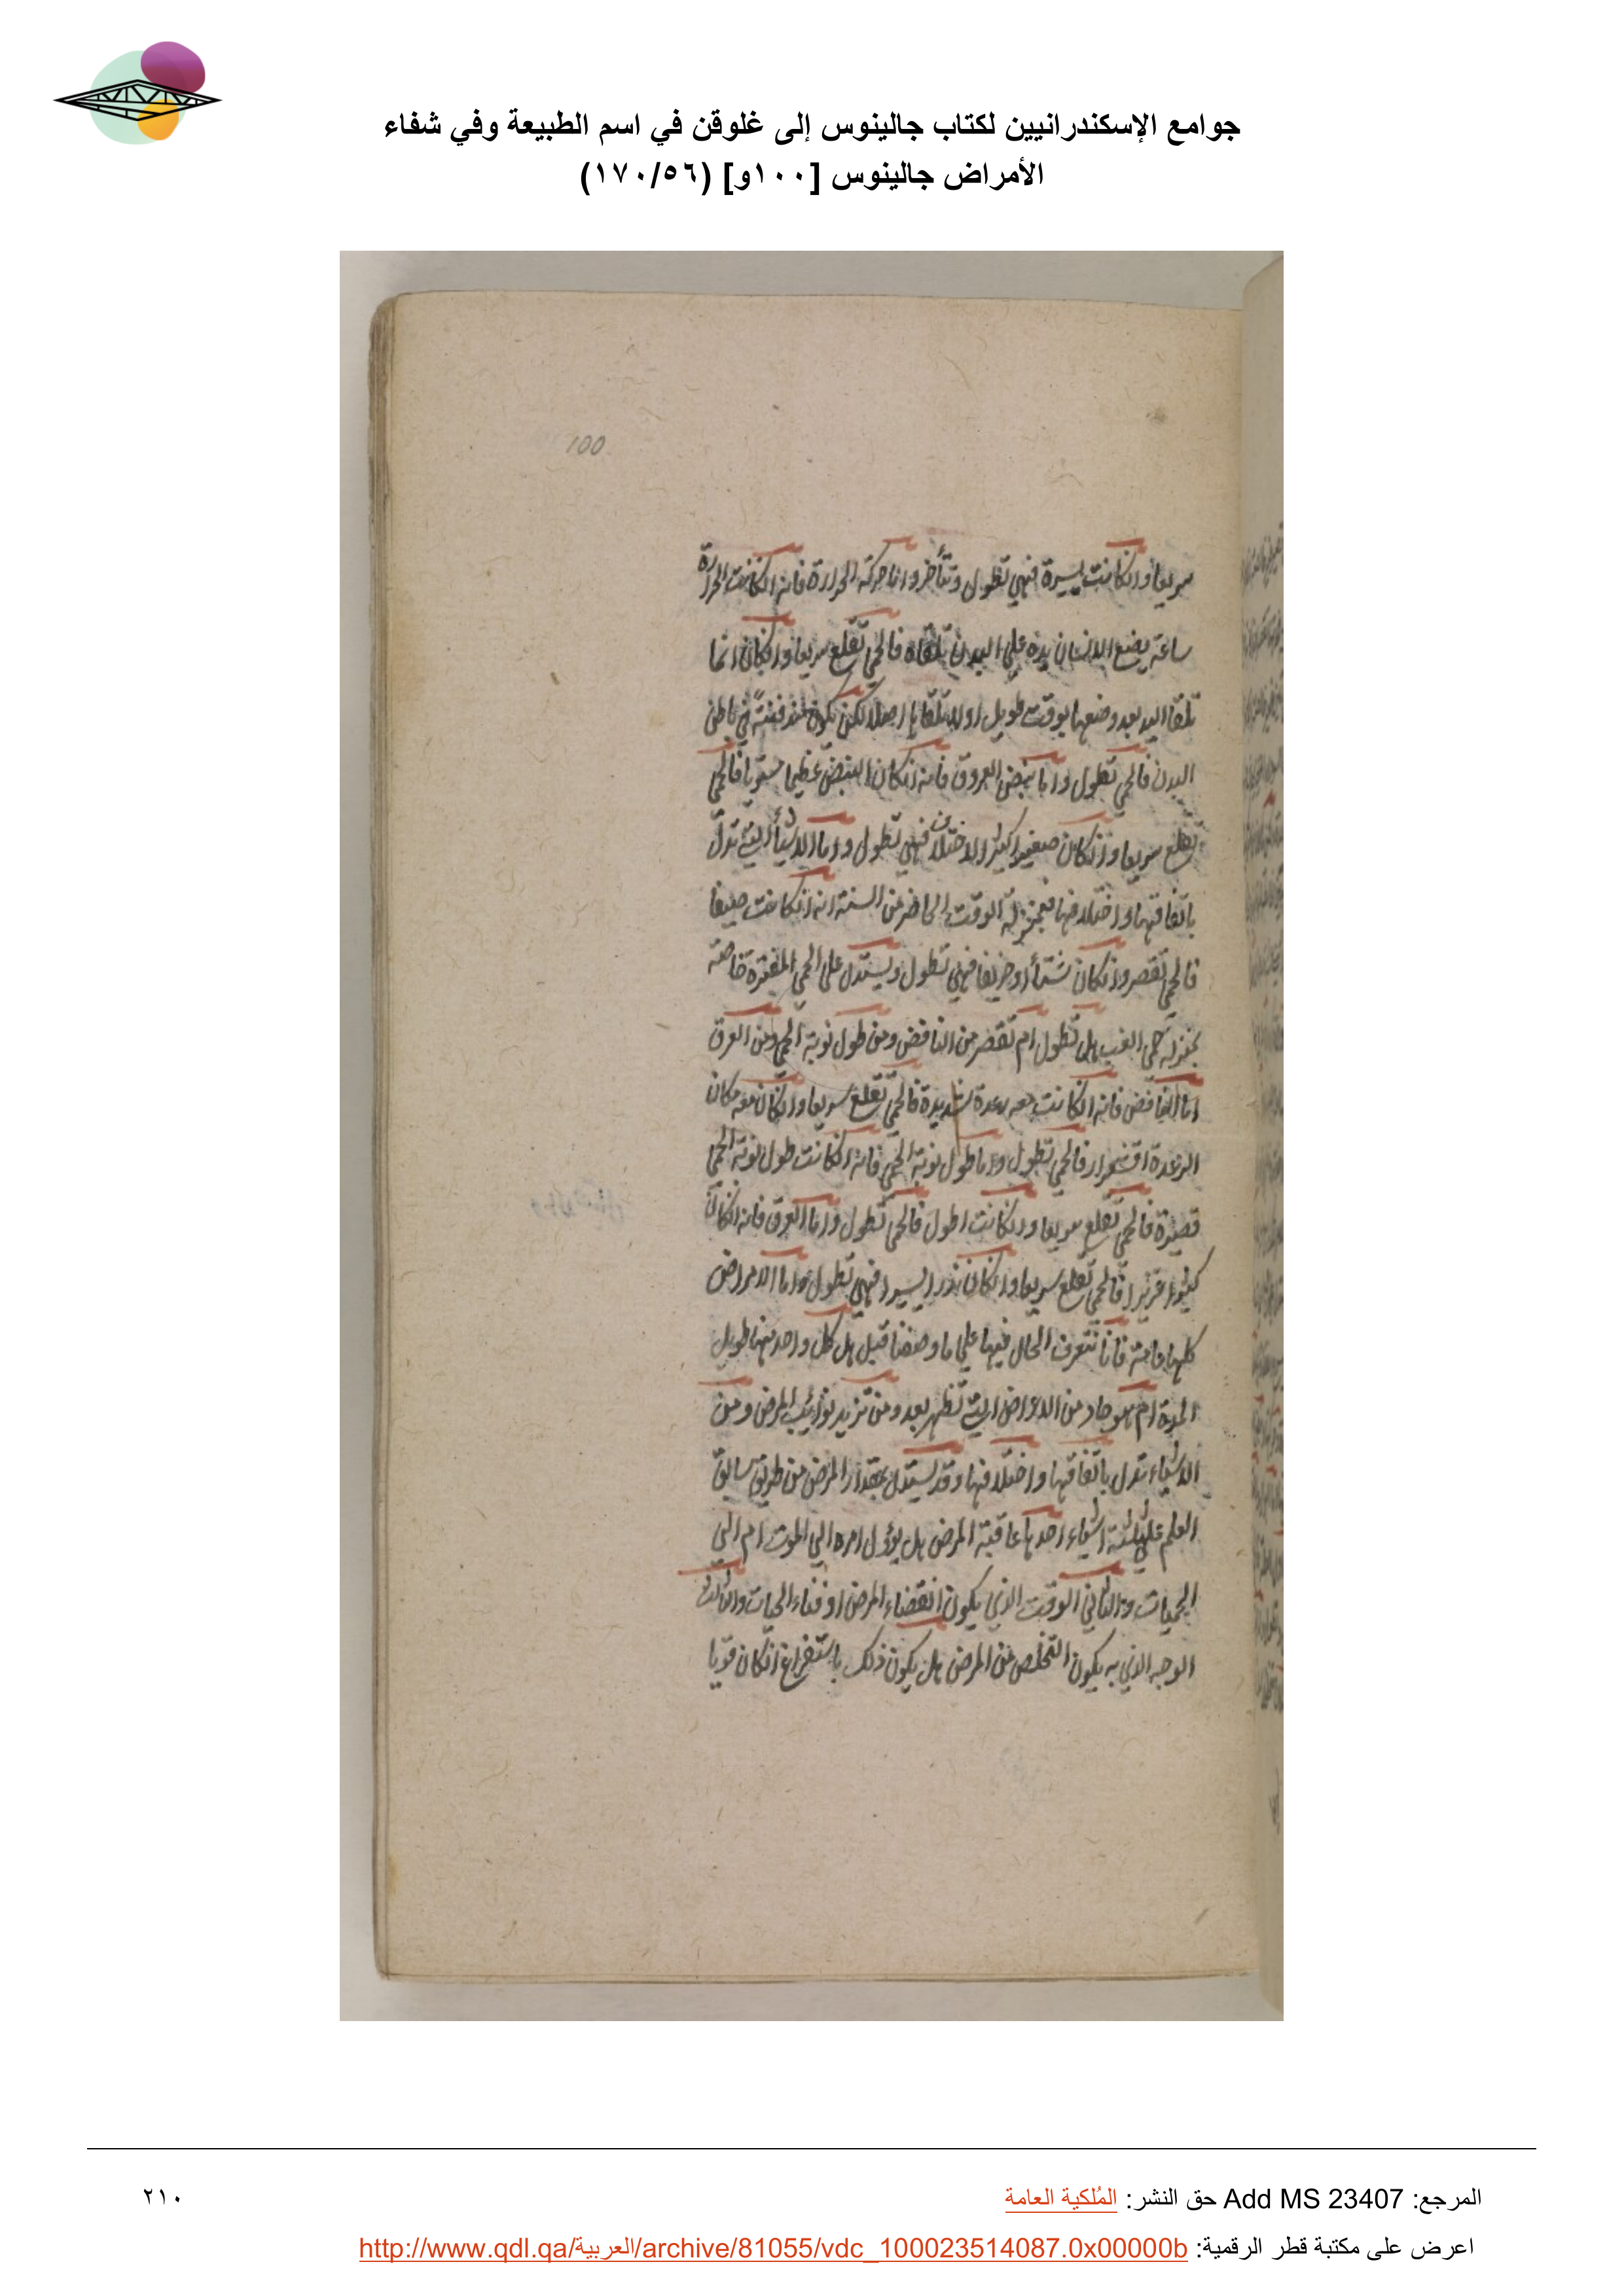 جوامع الإسكندرانيين لكتاب جالينوس إلى غلوقن في اسم الطبيعة وفي شفاء
الأمراض جالينوس [١٠٠و] (١٧٠/٥٦)
100
سريعا وانكانت يسيرة فهي تطول وتتأخر واما حركة الحرارة فانه انكانت الحرارة
ساعة يضع الانسان يده على البدن تلقاه فالحمى تقلع سريعا وانكان انما
تلقا اليد بعد وضعها بوقت طويل او لا تلقاها اصلا لكن تكون مندفنة في باطن
البدن فالحمى تطول واما نبض العروق فانه انكان النبض عظيما مستويا فالحمى
تقلع سريعا وانكان صغيرا كثير الاختلاف فهي تطول واما الاشيأ التي تدل
باتفاقها واختلافها فبمنزلة الوقت الحاضر من السنة انه انكانت صيفا
فالحمى تقصر وانكان شتأ او خريفا فهي تطول ويستدل على الحمى المفترة خاصة
بمنزلة حمى الغب هل تطول ام تقصر من النافض ومن طول نوبة الحمى ومن العرق
اما النافض فانه انكانت معه رعدة شديدة فالحمى تقلع سريعا وانكان معه مكان
الرعدة اقشعرار فالحمى تطول واما طول نوبة الحمى فانه انكانت طول نوبة الحمى
قصيرة فالحمى تقلع سريعا وانكانت اطول فالحمى تطول واما العرق فانه انكان
كثيرا غزيرا فالحمى تقلع سريعا وانكان نذرا يسيرا فهي تطول واما الامراض
كلها عامة فانا نتعرف الحال فيها على ما وصفنا قبل هل كل واحد منها طويل
المدة ام هو حاد من الاعراض التي تظهر بعد ومن تزيد نوائب المرض ومن
الاشياء تدل باتفاقها واختلافها وقد يستدل بمقدار المرض من طريق سابق
العلم على ثلثة اشياء احدها عاقبة المرض هل يؤول امره الي الموت ام الي
الحيات والثاني الوقت الذي يكون انقضاء المرض او فناء الحيات والثالث
الوجه الذي به يكون التخلص من المرض هل يكون ذلك باستفراغ انكان قويا
المرجع: Add MS 23407 حق النشر: المُلكية العامة
٢١٠
اعرض على مكتبة قطر الرقمية: http://www.qdl.qa/العربية/archive/81055/vdc_100023514087.0x00000b